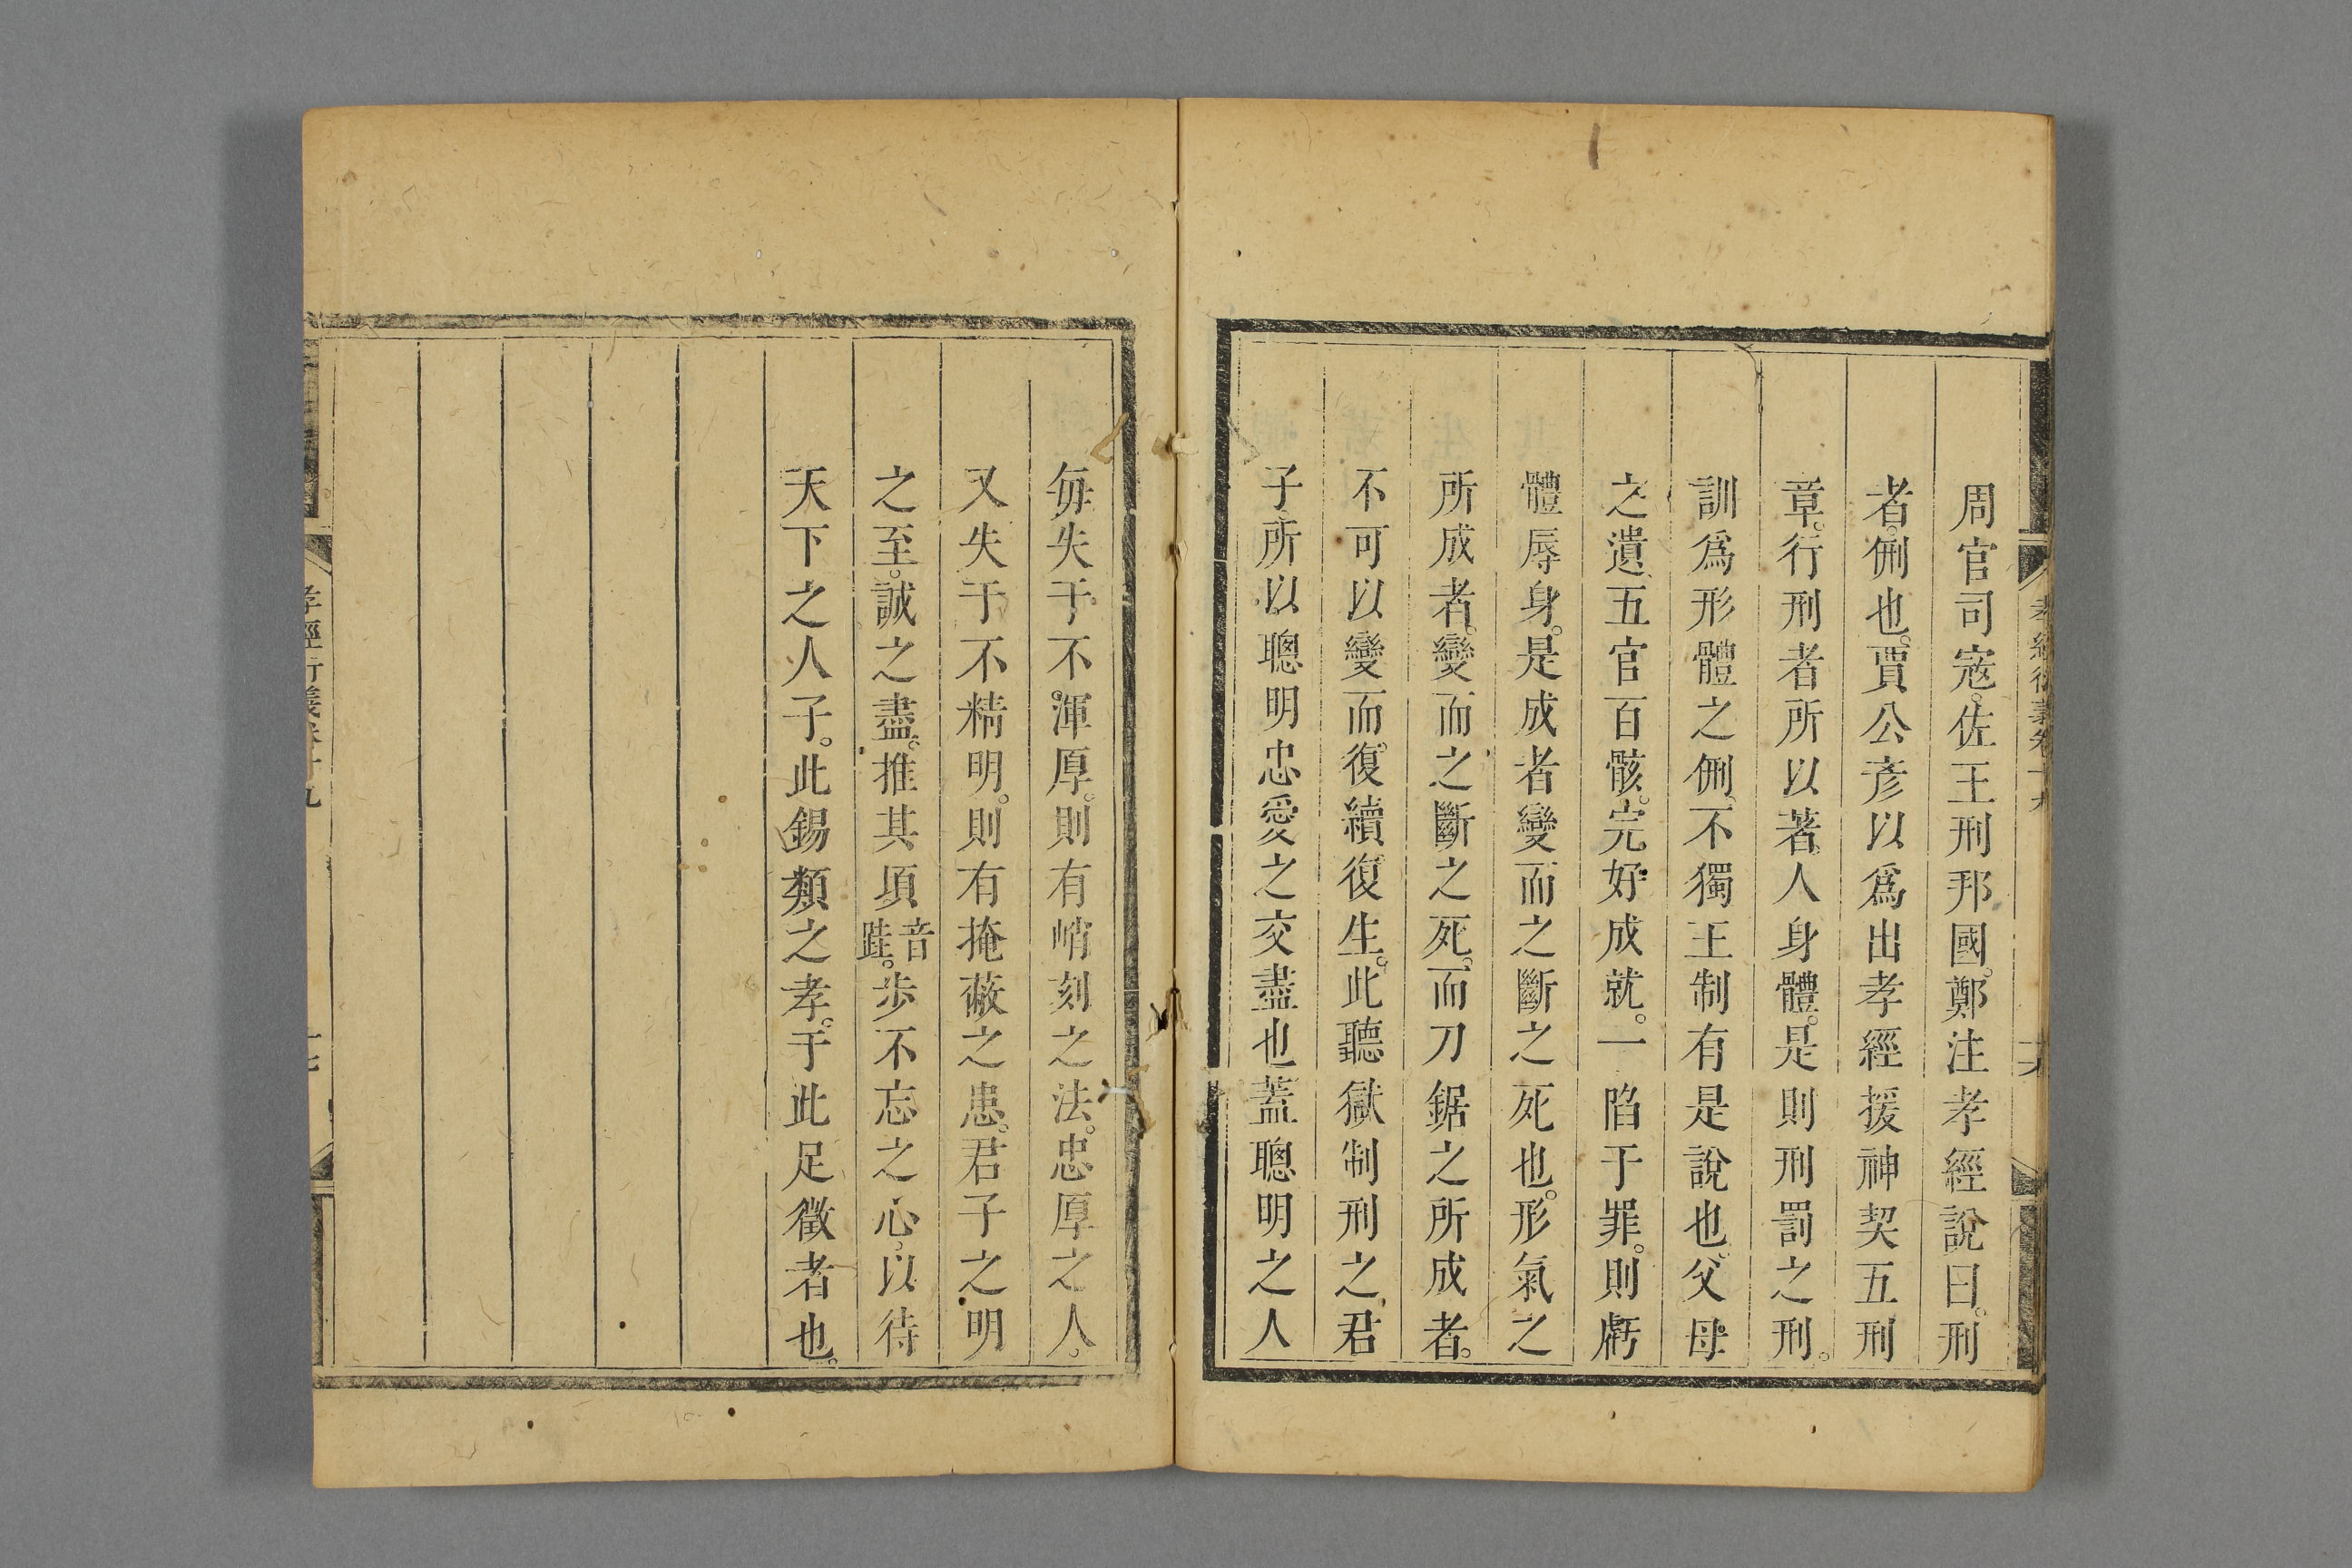 周官司寇。佐王刑邦國。鄭注孝經說曰。刑
者。侀也。賈公彥以爲出孝經援神契五刑
章。行刑者所以著人身體。是則刑罰之刑。
訓爲形體之侀。不獨王制有是說也。父母
之遺。五官百骸。完好成就。一陷于罪。則虧
體辱身。是成者變而之斷之死也。形氣之
所成者。變而之斷之死。而刀鋸之所成者。
不可以變而復續復生。此聽獄制刑之君
子所以聰明忠愛之交盡也蓋聰明之人
每失于不渾厚。則有峭刻之法。忠厚之人。
又失于不精明。則有掩蔽之患。君子之明
之至。誠之盡。推其頃音跬。步不忘之心。以待
天下之人子。此錫類之孝。于此足徵者也。
孝經衍義卷十九
十六
孝經衍義卷十九